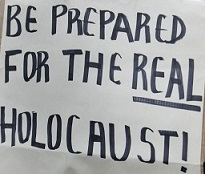 BE PREPARED
FOR THE REAL
HOLOCAUST!